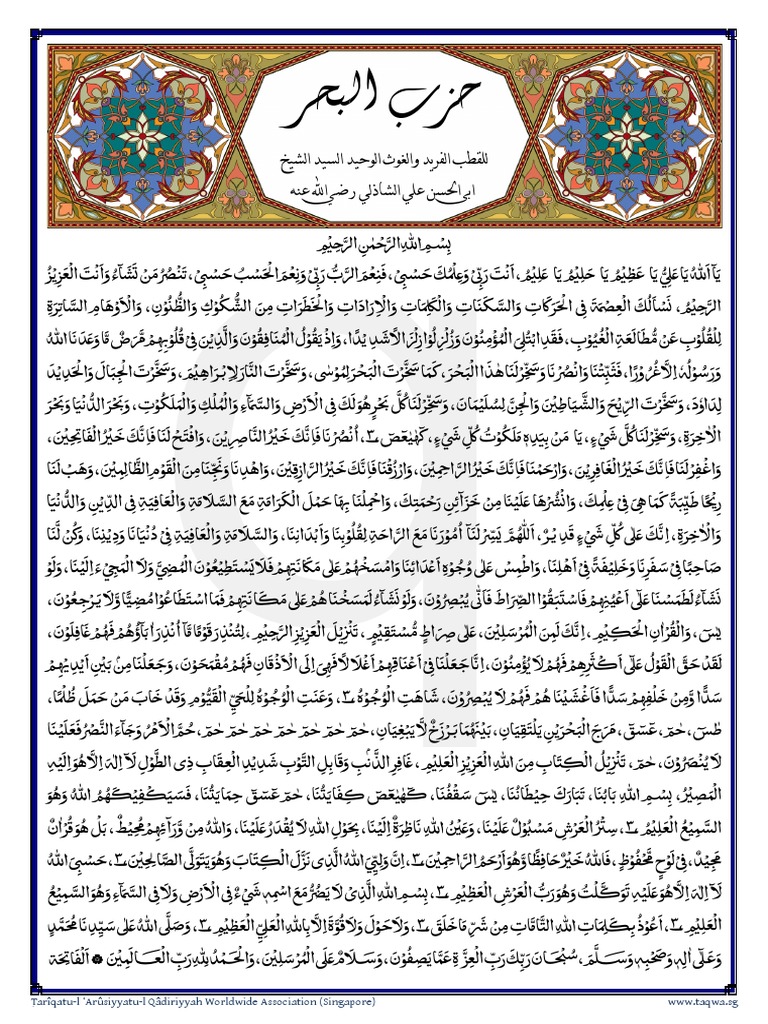 حزب البحر
للقطب الفريد والغوث الوحيد السيد الشيخ
ابى الحسن علي الشاذلي رضي الله عنه
بِسْمِ اللهِ الرَّحْمٰنِ الرَّحِيْمِ
يَآ اَللهُ يَا عَلِيُّ يَا عَظِيْمُ يَا حَلِيْمُ يَا عَلِيْمُ، اَنْتَ رَبِّيْ وَعِلْمُكَ حَسْبِيْ، فَنِعْمَ الرَّبُّ رَبِّيْ وَنِعْمَ الْحَسْبُ حَسْبِيْ، تَنْصُرُ مَنْ تَشَآءُ وَاَنْتَ الْعَزِيْزُ
الرَّحِيْمُ، نَسْأَلُكَ الْعِصْمَةَ فِى الْحَرَكَاتِ وَالسَّكَنَاتِ وَالْكَلِمَاتِ وَالْاِرَادَاتِ وَالْخَطَرَاتِ مِنَ الشُّكُوْكِ وَالظُّنُوْنِ، وَالْاَوْهَامِ السَّاتِرَةِ
لِلْقُلُوْبِ عَنْ مُّطَالَعَةِ الْغُيُوْبِ، فَقَدِ ابْتُلِىَ الْمُؤْمِنُوْنَ وَزُلْزِلُوْا زِلْزَالًا شَدِيْدًا، وَاِذْ يَقُوْلُ الْمُنَافِقُوْنَ وَالَّذِيْنَ فِيْ قُلُوْبِهِمْ مَّرَضٌ مَّا وَعَدَنَا اللهُ
وَرَسُوْلُهٗ اِلَّا غُرُوْرًا، فَثَبِّتْنَا وَانْصُرْنَا وَسَخِّرْ لَنَا هٰذَا الْبَحْرَ، كَمَا سَخَّرْتَ الْبَحْرَ لِمُوْسٰى، وَسَخَّرْتَ النَّارَ لِاِبْرَاهِيْمَ، وَسَخَّرْتَ الْجِبَالَ وَالْحَدِيْدَ
لِدَاوٗدَ، وَسَخَّرْتَ الرِّيْحَ وَالشَّيَاطِيْنَ وَالْجِنَّ لِسُلَيْمَانَ، وَسَخِّرْ لَنَا كُلَّ بَحْرٍ هُوَ لَكَ فِى الْاَرْضِ وَالسَّمَآءِ وَالْمُلْكِ وَالْمَلَكُوْتِ، وَبَحْرَ الدُّنْيَا وَبَحْرَ
الْاٰخِرَةِ، وَسَخِّرْ لَنَا كُلَّ شَيْءٍ، يَا مَنْ بِيَدِهٖ مَلَكُوْتُ كُلِّ شَيْءٍ، كٓهٰيٰعٓصٓ ٣، اُنْصُرْنَا فَاِنَّكَ خَيْرُ النَّاصِرِيْنَ، وَافْتَحْ لَنَا فَاِنَّكَ خَيْرُ الْفَاتِحِيْنَ،
وَاغْفِرْ لَنَا فَاِنَّكَ خَيْرُ الْغَافِرِيْنَ، وَارْحَمْنَا فَاِنَّكَ خَيْرُ الرَّاحِمِيْنَ، وَارْزُقْنَا فَاِنَّكَ خَيْرُ الرَّازِقِيْنَ، وَاهْدِنَا وَنَجِّنَا مِنَ الْقَوْمِ الظَّالِمِيْنَ، وَهَبْ لَنَا
رِيْحًا طَيِّبَةً كَمَا هِيَ فِيْ عِلْمِكَ، وَانْشُرْهَا عَلَيْنَا مِنْ خَزَآئِنِ رَحْمَتِكَ، وَاحْمِلْنَا بِهَا حَمْلَ الْكَرَامَةِ مَعَ السَّلَامَةِ وَالْعَافِيَةِ فِى الدِّيْنِ وَالدُّنْيَا
وَالْاٰخِرَةِ، اِنَّكَ عَلٰى كُلِّ شَيْءٍ قَدِيْرٌ، اَللّٰهُمَّ يَسِّرْ لَنَآ اُمُوْرَنَا مَعَ الرَّاحَةِ لِقُلُوْبِنَا وَاَبْدَانِنَا، وَالسَّلَامَةِ وَالْعَافِيَةِ فِيْ دُنْيَانَا وَدِيْنِنَا، وَكُنْ لَّنَا
صَاحِبًا فِيْ سَفَرِنَا وَخَلِيْفَةً فِيْ اَهْلِنَا، وَاطْمِسْ عَلٰى وُجُوْهِ اَعْدَآئِنَا وَامْسَخْهُمْ عَلٰى مَكَانَتِهِمْ فَلَا يَسْتَطِيْعُوْنَ الْمُضِيَّ وَلَا الْمَجِيْءَ اِلَيْنَا، وَلَوْ
نَشَآءُ لَطَمَسْنَا عَلٰٓى اَعْيُنِهِمْ فَاسْتَبَقُوا الصِّرَاطَ فَاَنّٰى يُبْصِرُوْنَ، وَلَوْ نَشَآءُ لَمَسَخْنَاهُمْ عَلٰى مَكَانَتِهِمْ فَمَا اسْتَطَاعُوْا مُضِيًّا وَّلَا يَرْجِعُوْنَ،
يٰسٓ، وَالْقُرْاٰنِ الْحَكِيْمِ، اِنَّكَ لَمِنَ الْمُرْسَلِيْنَ، عَلٰى صِرَاطٍ مُّسْتَقِيْمٍ، تَنْزِيْلَ الْعَزِيْزِ الرَّحِيْمِ، لِتُنْذِرَ قَوْمًا مَّآ اُنْذِرَ اٰبَاؤُهُمْ فَهُمْ غَافِلُوْنَ،
لَقَدْ حَقَّ الْقَوْلُ عَلٰٓى اَكْثَرِهِمْ فَهُمْ لَا يُؤْمِنُوْنَ، اِنَّا جَعَلْنَا فِيْ اَعْنَاقِهِمْ اَغْلَالًا فَهِيَ اِلَى الْاَذْقَانِ فَهُمْ مُقْمَحُوْنَ، وَجَعَلْنَا مِنْ بَيْنِ اَيْدِيْهِمْ
سَدًّا وَّمِنْ خَلْفِهِمْ سَدًّا فَاَغْشَيْنَاهُمْ فَهُمْ لَا يُبْصِرُوْنَ، شَاهَتِ الْوُجُوْهُ ٣، وَعَنَتِ الْوُجُوْهُ لِلْحَيِّ الْقَيُّوْمِ وَقَدْ خَابَ مَنْ حَمَلَ ظُلْمًا،
طٰسٓ، حٰمٓ، عٓسٓقٓ، مَرَجَ الْبَحْرَيْنِ يَلْتَقِيَانِ، بَيْنَهُمَا بَرْزَخٌ لَّا يَبْغِيَانِ، حٰمٓ حٰمٓ حٰمٓ حٰمٓ حٰمٓ حٰمٓ حٰمٓ، حُمَّ الْاَمْرُ وَجَآءَ النَّصْرُ فَعَلَيْنَا
لَا يُنْصَرُوْنَ، حٰمٓ، تَنْزِيْلُ الْكِتَابِ مِنَ اللهِ الْعَزِيْزِ الْعَلِيْمِ، غَافِرِ الذَّنْبِ وَقَابِلِ التَّوْبِ شَدِيْدِ الْعِقَابِ ذِى الطَّوْلِ لَآ اِلٰهَ اِلَّا هُوَ اِلَيْهِ
الْمَصِيْرُ، بِسْمِ اللهِ بَابُنَا، تَبَارَكَ حِيْطَانُنَا، يٰسٓ سَقْفُنَا، كٓهٰيٰعٓصٓ كِفَايَتُنَا، حٰمٓ عٓسٓقٓ حِمَايَتُنَا، فَسَيَكْفِيْكَهُمُ اللهُ وَهُوَ
السَّمِيْعُ الْعَلِيْمُ ٣، سِتْرُ الْعَرْشِ مَسْبُوْلٌ عَلَيْنَا، وَعَيْنُ اللهِ نَاظِرَةٌ اِلَيْنَا، بِحَوْلِ اللهِ لَا يُقْدَرُ عَلَيْنَا، وَاللهُ مِنْ وَّرَآئِهِمْ مُحِيْطٌ، بَلْ هُوَ قُرْاٰنٌ
مَجِيْدٌ، فِيْ لَوْحٍ مَّحْفُوْظٍ، فَاللهُ خَيْرٌ حَافِظًا وَّهُوَ اَرْحَمُ الرَّاحِمِيْنَ ٣، اِنَّ وَلِيِّيَ اللهُ الَّذِى نَزَّلَ الْكِتَابَ وَهُوَ يَتَوَلَّى الصَّالِحِيْنَ ٣، حَسْبِيَ اللهُ
لَآ اِلٰهَ اِلَّا هُوَ عَلَيْهِ تَوَكَّلْتُ وَهُوَ رَبُّ الْعَرْشِ الْعَظِيْمِ ٣، بِسْمِ اللهِ الَّذِى لَا يَضُرُّ مَعَ اسْمِهٖ شَيْءٌ فِى الْاَرْضِ وَلَا فِى السَّمَآءِ وَهُوَ السَّمِيْعُ
الْعَلِيْمُ ٣، اَعُوْذُ بِكَلِمَاتِ اللهِ التَّآمَّاتِ مِنْ شَرِّ مَا خَلَقَ ٣، وَلَا حَوْلَ وَلَا قُوَّةَ اِلَّا بِاللهِ الْعَلِيِّ الْعَظِيْمِ ٣، وَصَلَّى اللهُ عَلٰى سَيِّدِنَا مُحَمَّدٍ
وَّعَلٰٓى اٰلِهٖ وَصَحْبِهٖ وَسَلَّمَ، سُبْحَانَ رَبِّكَ رَبِّ الْعِزَّةِ عَمَّا يَصِفُوْنَ، وَسَلَامٌ عَلَى الْمُرْسَلِيْنَ، وَالْحَمْدُ لِلّٰهِ رَبِّ الْعَالَمِيْنَ ۞ اَلْفَاتِحَة
Tarîqatu-l 'Arûsiyyatu-l Qâdiriyyah Worldwide Association (Singapore)
www.taqwa.sg